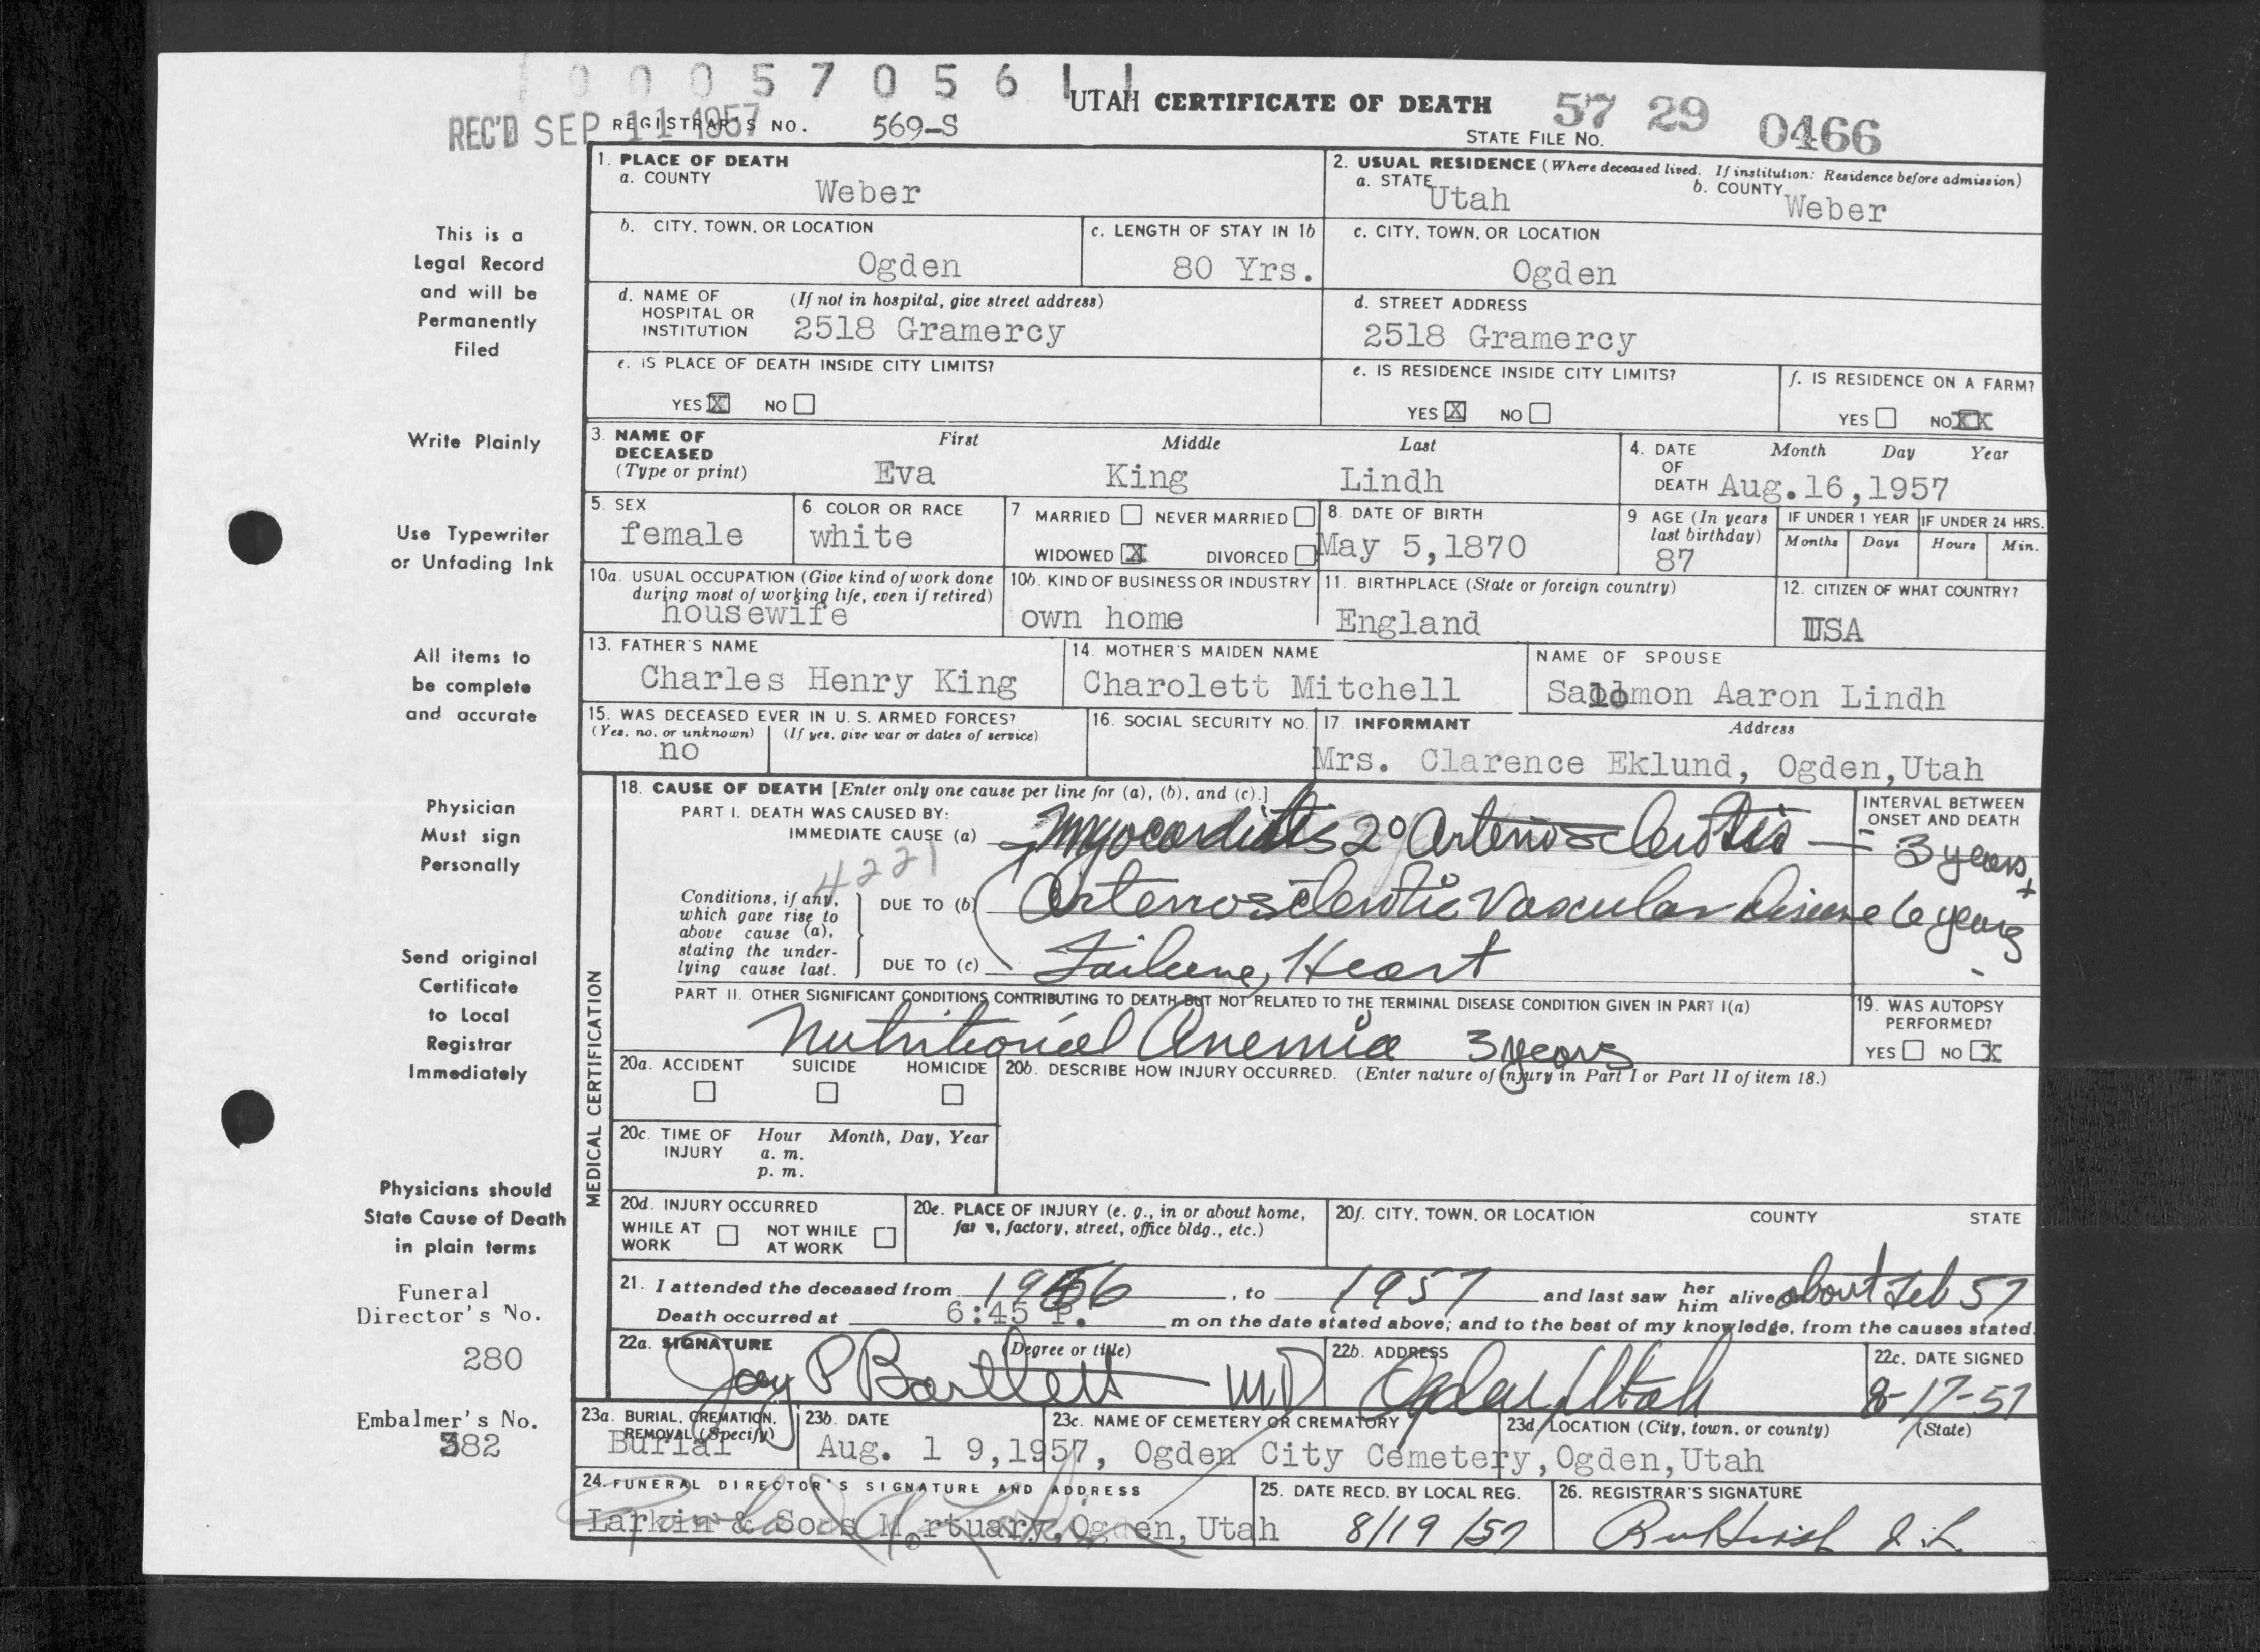 0 0 0 5 7 0 5 6 1 1
UTAH CERTIFICATE OF DEATH
57 29 0466
REC'D SEP 11 1957
REGISTRAR'S NO. 569-S
STATE FILE NO.
1. PLACE OF DEATH
a. COUNTY
Weber
2. USUAL RESIDENCE (Where deceased lived. If institution: Residence before admission)
a. STATE Utah
b. COUNTY Weber
b. CITY, TOWN, OR LOCATION
Ogden
c. LENGTH OF STAY IN 1b
80 Yrs.
c. CITY, TOWN, OR LOCATION
Ogden
d. NAME OF HOSPITAL OR INSTITUTION
(If not in hospital, give street address)
2518 Gramercy
d. STREET ADDRESS
2518 Gramercy
e. IS PLACE OF DEATH INSIDE CITY LIMITS?
YES X NO
e. IS RESIDENCE INSIDE CITY LIMITS?
YES X NO
f. IS RESIDENCE ON A FARM?
YES NO XX
3. NAME OF DECEASED
(Type or print)
First Middle Last
Eva King Lindh
4. DATE OF DEATH
Month Day Year
Aug.16,1957
5. SEX
female
6. COLOR OR RACE
white
7 MARRIED NEVER MARRIED
WIDOWED X DIVORCED
8. DATE OF BIRTH
May 5,1870
9 AGE (In years last birthday)
87
IF UNDER 1 YEAR
Months Days
IF UNDER 24 HRS.
Hours Min.
10a. USUAL OCCUPATION (Give kind of work done during most of working life, even if retired)
housewife
10b. KIND OF BUSINESS OR INDUSTRY
own home
11. BIRTHPLACE (State or foreign country)
England
12. CITIZEN OF WHAT COUNTRY?
USA
13. FATHER'S NAME
Charles Henry King
14. MOTHER'S MAIDEN NAME
Charolett Mitchell
NAME OF SPOUSE
Salomon Aaron Lindh
15. WAS DECEASED EVER IN U. S. ARMED FORCES?
(Yes, no, or unknown) (If yes, give war or dates of service)
no
16. SOCIAL SECURITY NO.
17. INFORMANT Address
Mrs. Clarence Eklund, Ogden,Utah
MEDICAL CERTIFICATION
18. CAUSE OF DEATH [Enter only one cause per line for (a), (b), and (c).]
INTERVAL BETWEEN ONSET AND DEATH
PART I. DEATH WAS CAUSED BY:
IMMEDIATE CAUSE (a) Myocarditis 2° Arteriosclerotis 3 years +
4221
Conditions, if any, which gave rise to above cause (a), stating the underlying cause last.
DUE TO (b) Arteriosclerotic Vascular disease 6 years
DUE TO (c) Failure, Heart
PART II. OTHER SIGNIFICANT CONDITIONS CONTRIBUTING TO DEATH BUT NOT RELATED TO THE TERMINAL DISEASE CONDITION GIVEN IN PART I(a)
Nutritional Anemia 3 years
19. WAS AUTOPSY PERFORMED?
YES NO X
20a. ACCIDENT SUICIDE HOMICIDE
20b. DESCRIBE HOW INJURY OCCURRED. (Enter nature of injury in Part I or Part II of item 18.)
20c. TIME OF INJURY
Hour Month, Day, Year
a. m.
p. m.
20d. INJURY OCCURRED
WHILE AT WORK NOT WHILE AT WORK
20e. PLACE OF INJURY (e. g., in or about home, farm, factory, street, office bldg., etc.)
20f. CITY, TOWN, OR LOCATION COUNTY STATE
21. I attended the deceased from 1946, to 1957 and last saw her him alive about Feb 57
Death occurred at 6:45 P. m on the date stated above; and to the best of my knowledge, from the causes stated.
22a. SIGNATURE (Degree or title)
Jay P Bartlett MD
22b. ADDRESS
Ogden, Utah
22c. DATE SIGNED
8-17-57
23a. BURIAL, CREMATION, REMOVAL (Specify)
Burial
23b. DATE
Aug. 1 9,1957,
23c. NAME OF CEMETERY OR CREMATORY
Ogden City Cemetery,
23d. LOCATION (City, town, or county) (State)
Ogden,Utah
24. FUNERAL DIRECTOR'S SIGNATURE AND ADDRESS
Larkin & Sons Mortuary,Ogden,Utah
25. DATE RECD. BY LOCAL REG.
8/19/57
26. REGISTRAR'S SIGNATURE
This is a
Legal Record
and will be
Permanently
Filed
Write Plainly
Use Typewriter
or Unfading Ink
All items to
be complete
and accurate
Physician
Must sign
Personally
Send original
Certificate
to Local
Registrar
Immediately
Physicians should
State Cause of Death
in plain terms
Funeral
Director's No.
280
Embalmer's No.
382